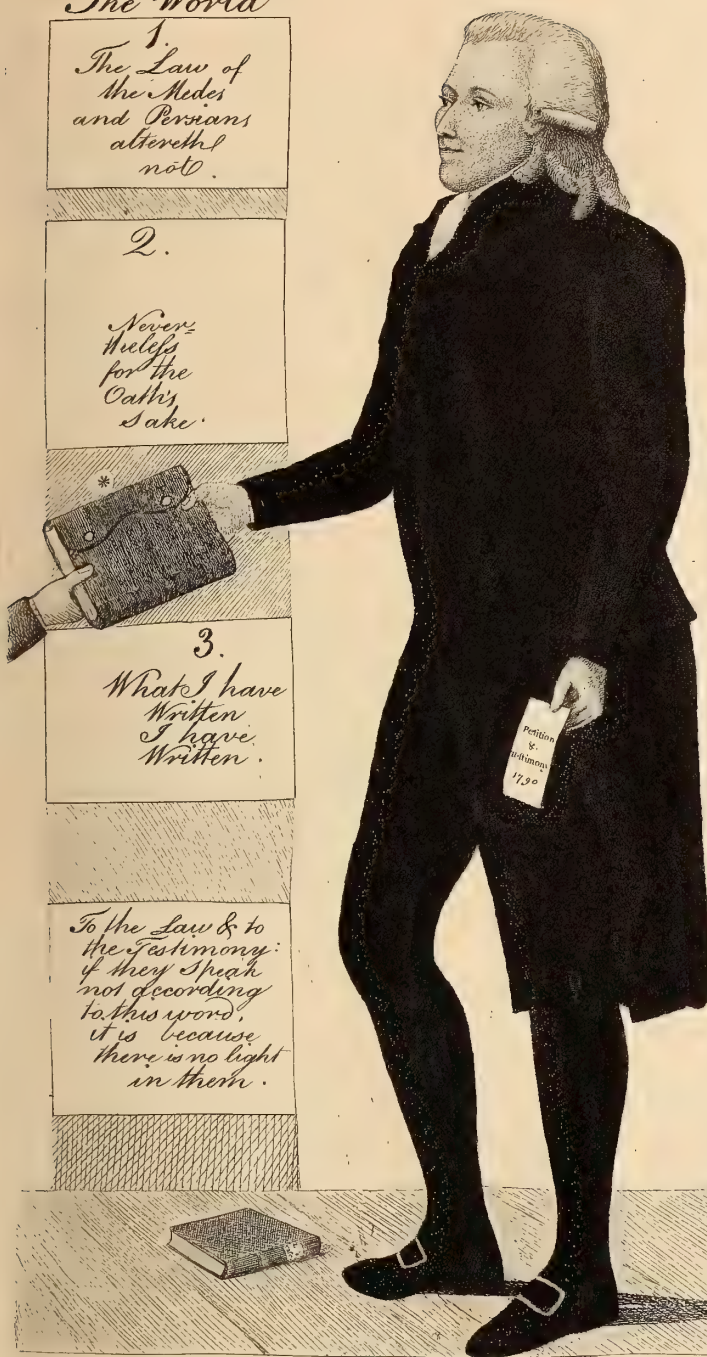 The World
1.
The Law of
the Medes
and Persians
altereth
not.
2.
Never=
theleſs
for the
Oath's
sake.
*
3.
What I have
Written
I have
Written.
Petition
&
Testimony
1790
To the Law & to
the Testimony:
if they speak
not according
to this word,
it is because
there is no light
in them.